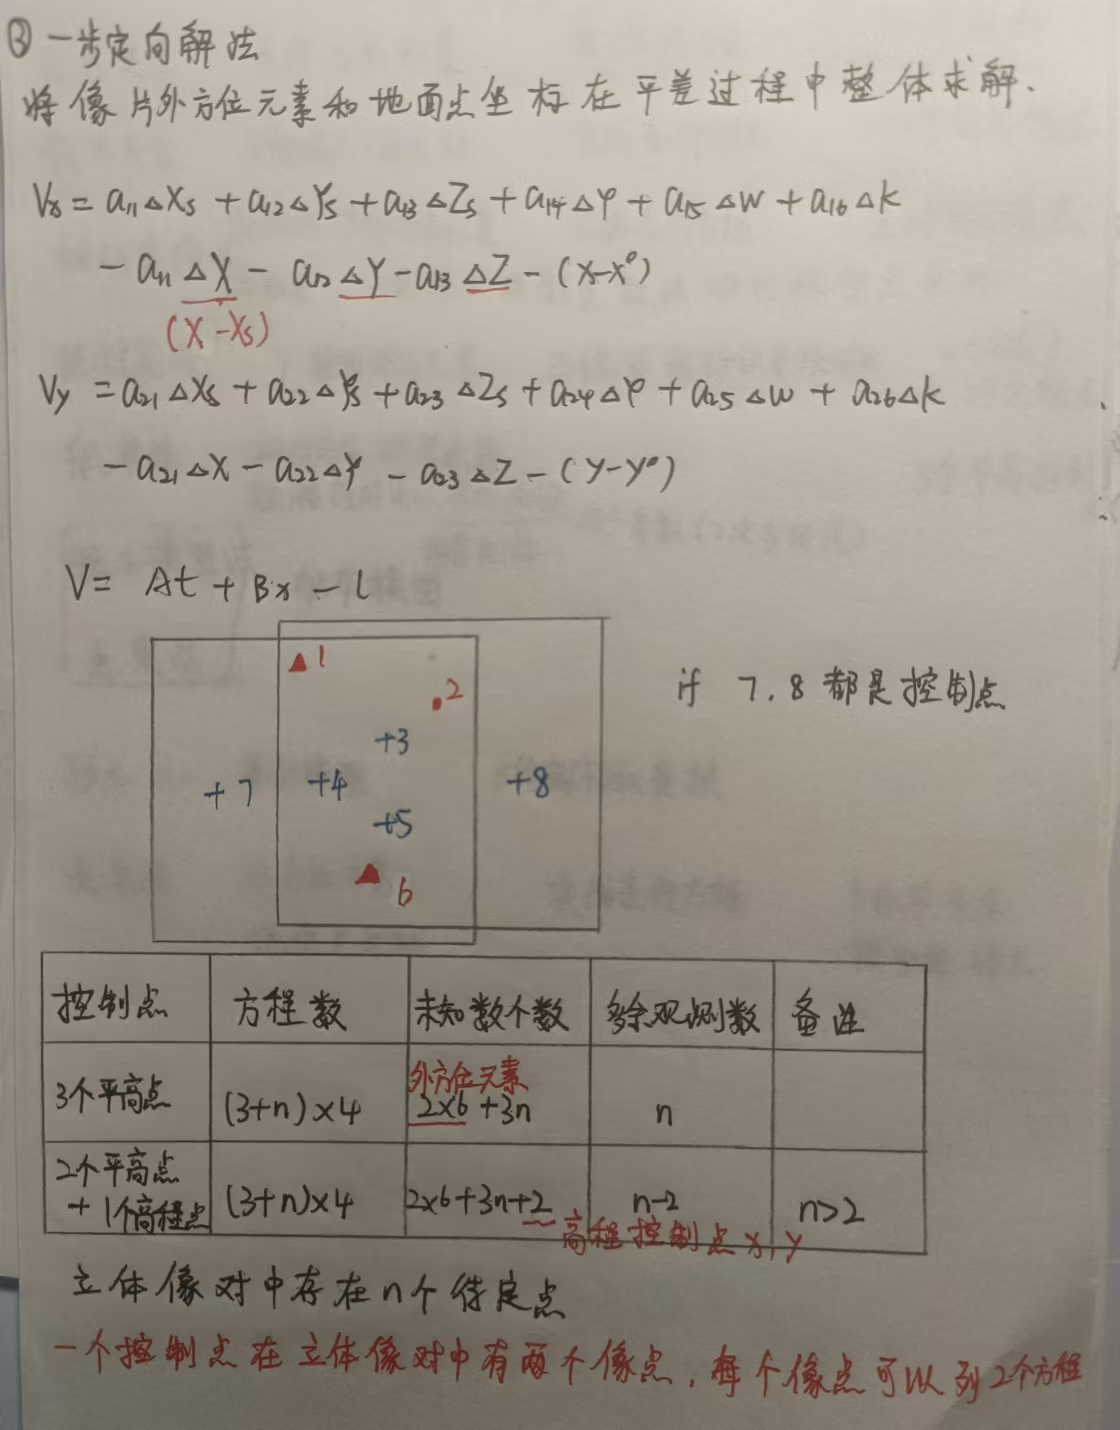 ③ 一步定向解法
将像片外方位元素和地面点坐标在平差过程中整体求解.
Vx = a11△Xs + a12△Ys + a13△Zs + a14△φ + a15△w + a16△k
- a11△X - a12△Y - a13△Z - (x-x⁰)
(X-Xs)
Vy = a21△Xs + a22△Ys + a23△Zs + a24△φ + a25△w + a26△k
- a21△X - a22△Y - a23△Z - (y-y⁰)
V = At + Bx - l
1
2
if 7.8都是控制点
+3
+7 +4 +8
+5
6
控制点 方程数 未知数个数 多余观测数 备注
外方位元素
3个平高点 (3+n)×4 2×6+3n n
2个平高点
+1个高程点 (3+n)×4 2×6+3n+2 n-2 n>2
高程控制点x,y
立体像对中存在n个待定点
一个控制点在立体像对中有两个像点,每个像点可以列2个方程